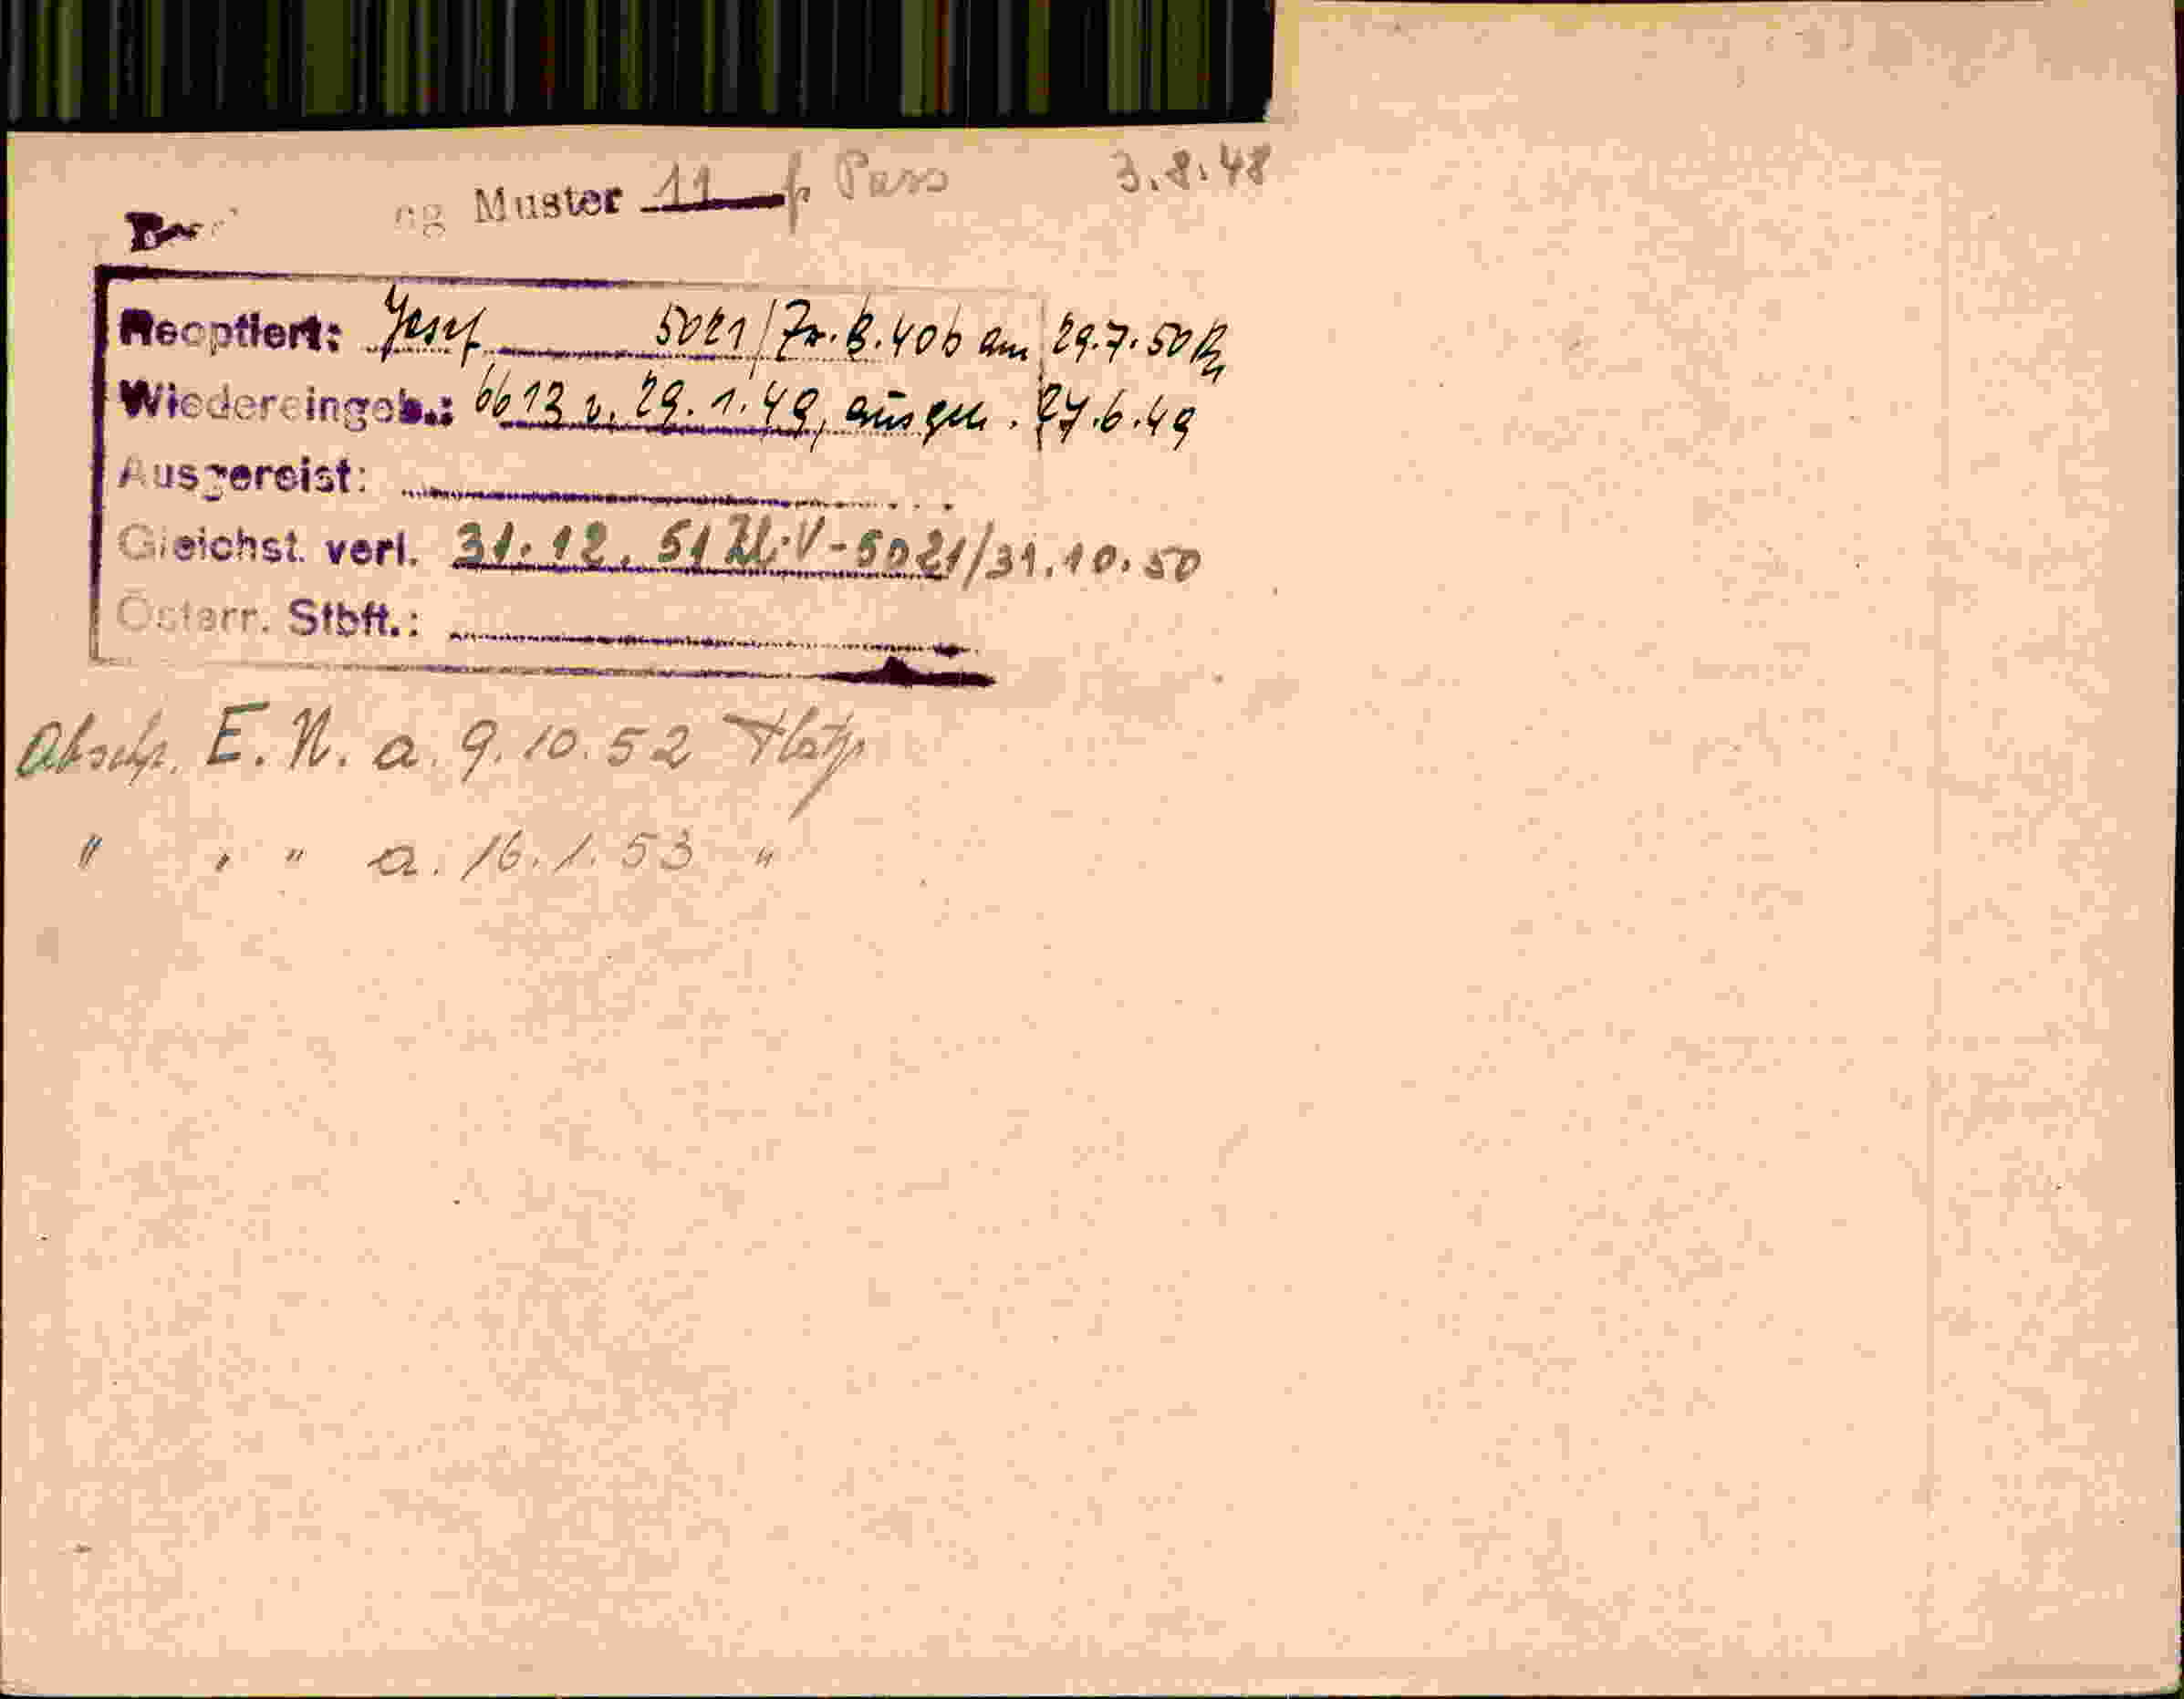 ng Muster 11 f. Pass 3.8.48
Reoptiert: Josef 5021/ am 29.7.50
Wiedereingeb.: 6613 v. 29.1.49, 27.6.49
Ausgereist:
Gleichst. verl. 31.12.51 Zl. V-5021/31.10.50
Österr. Stbft.:
Abschr. E. N. a. 9.10.52
" " " a. 16.1.53 "